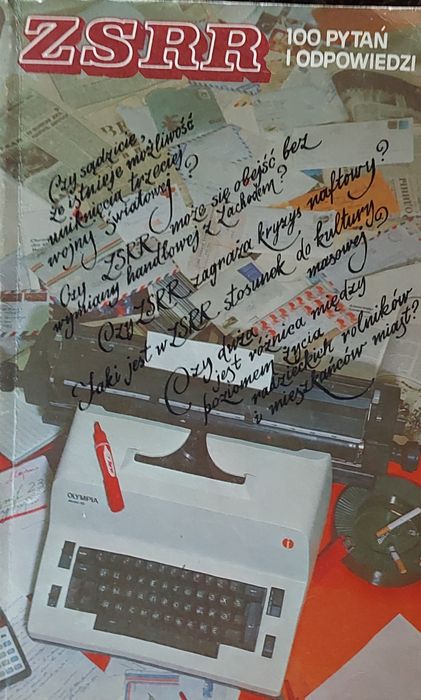 ZSRR
100 PYTAŃ
I ODPOWIEDZI
Czy sądzicie,
że istnieje możliwość
uniknięcia trzeciej
wojny światowej?
Czy ZSRR może się obejść bez
wymiany handlowej z Zachodem?
Czy ZSRR zagraża kryzys naftowy?
Jaki jest w ZSRR stosunek do kultury
masowej?
Czy duża
jest różnica między
poziomem życia
radzieckich rolników
i mieszkańców miast?
OLYMPIA